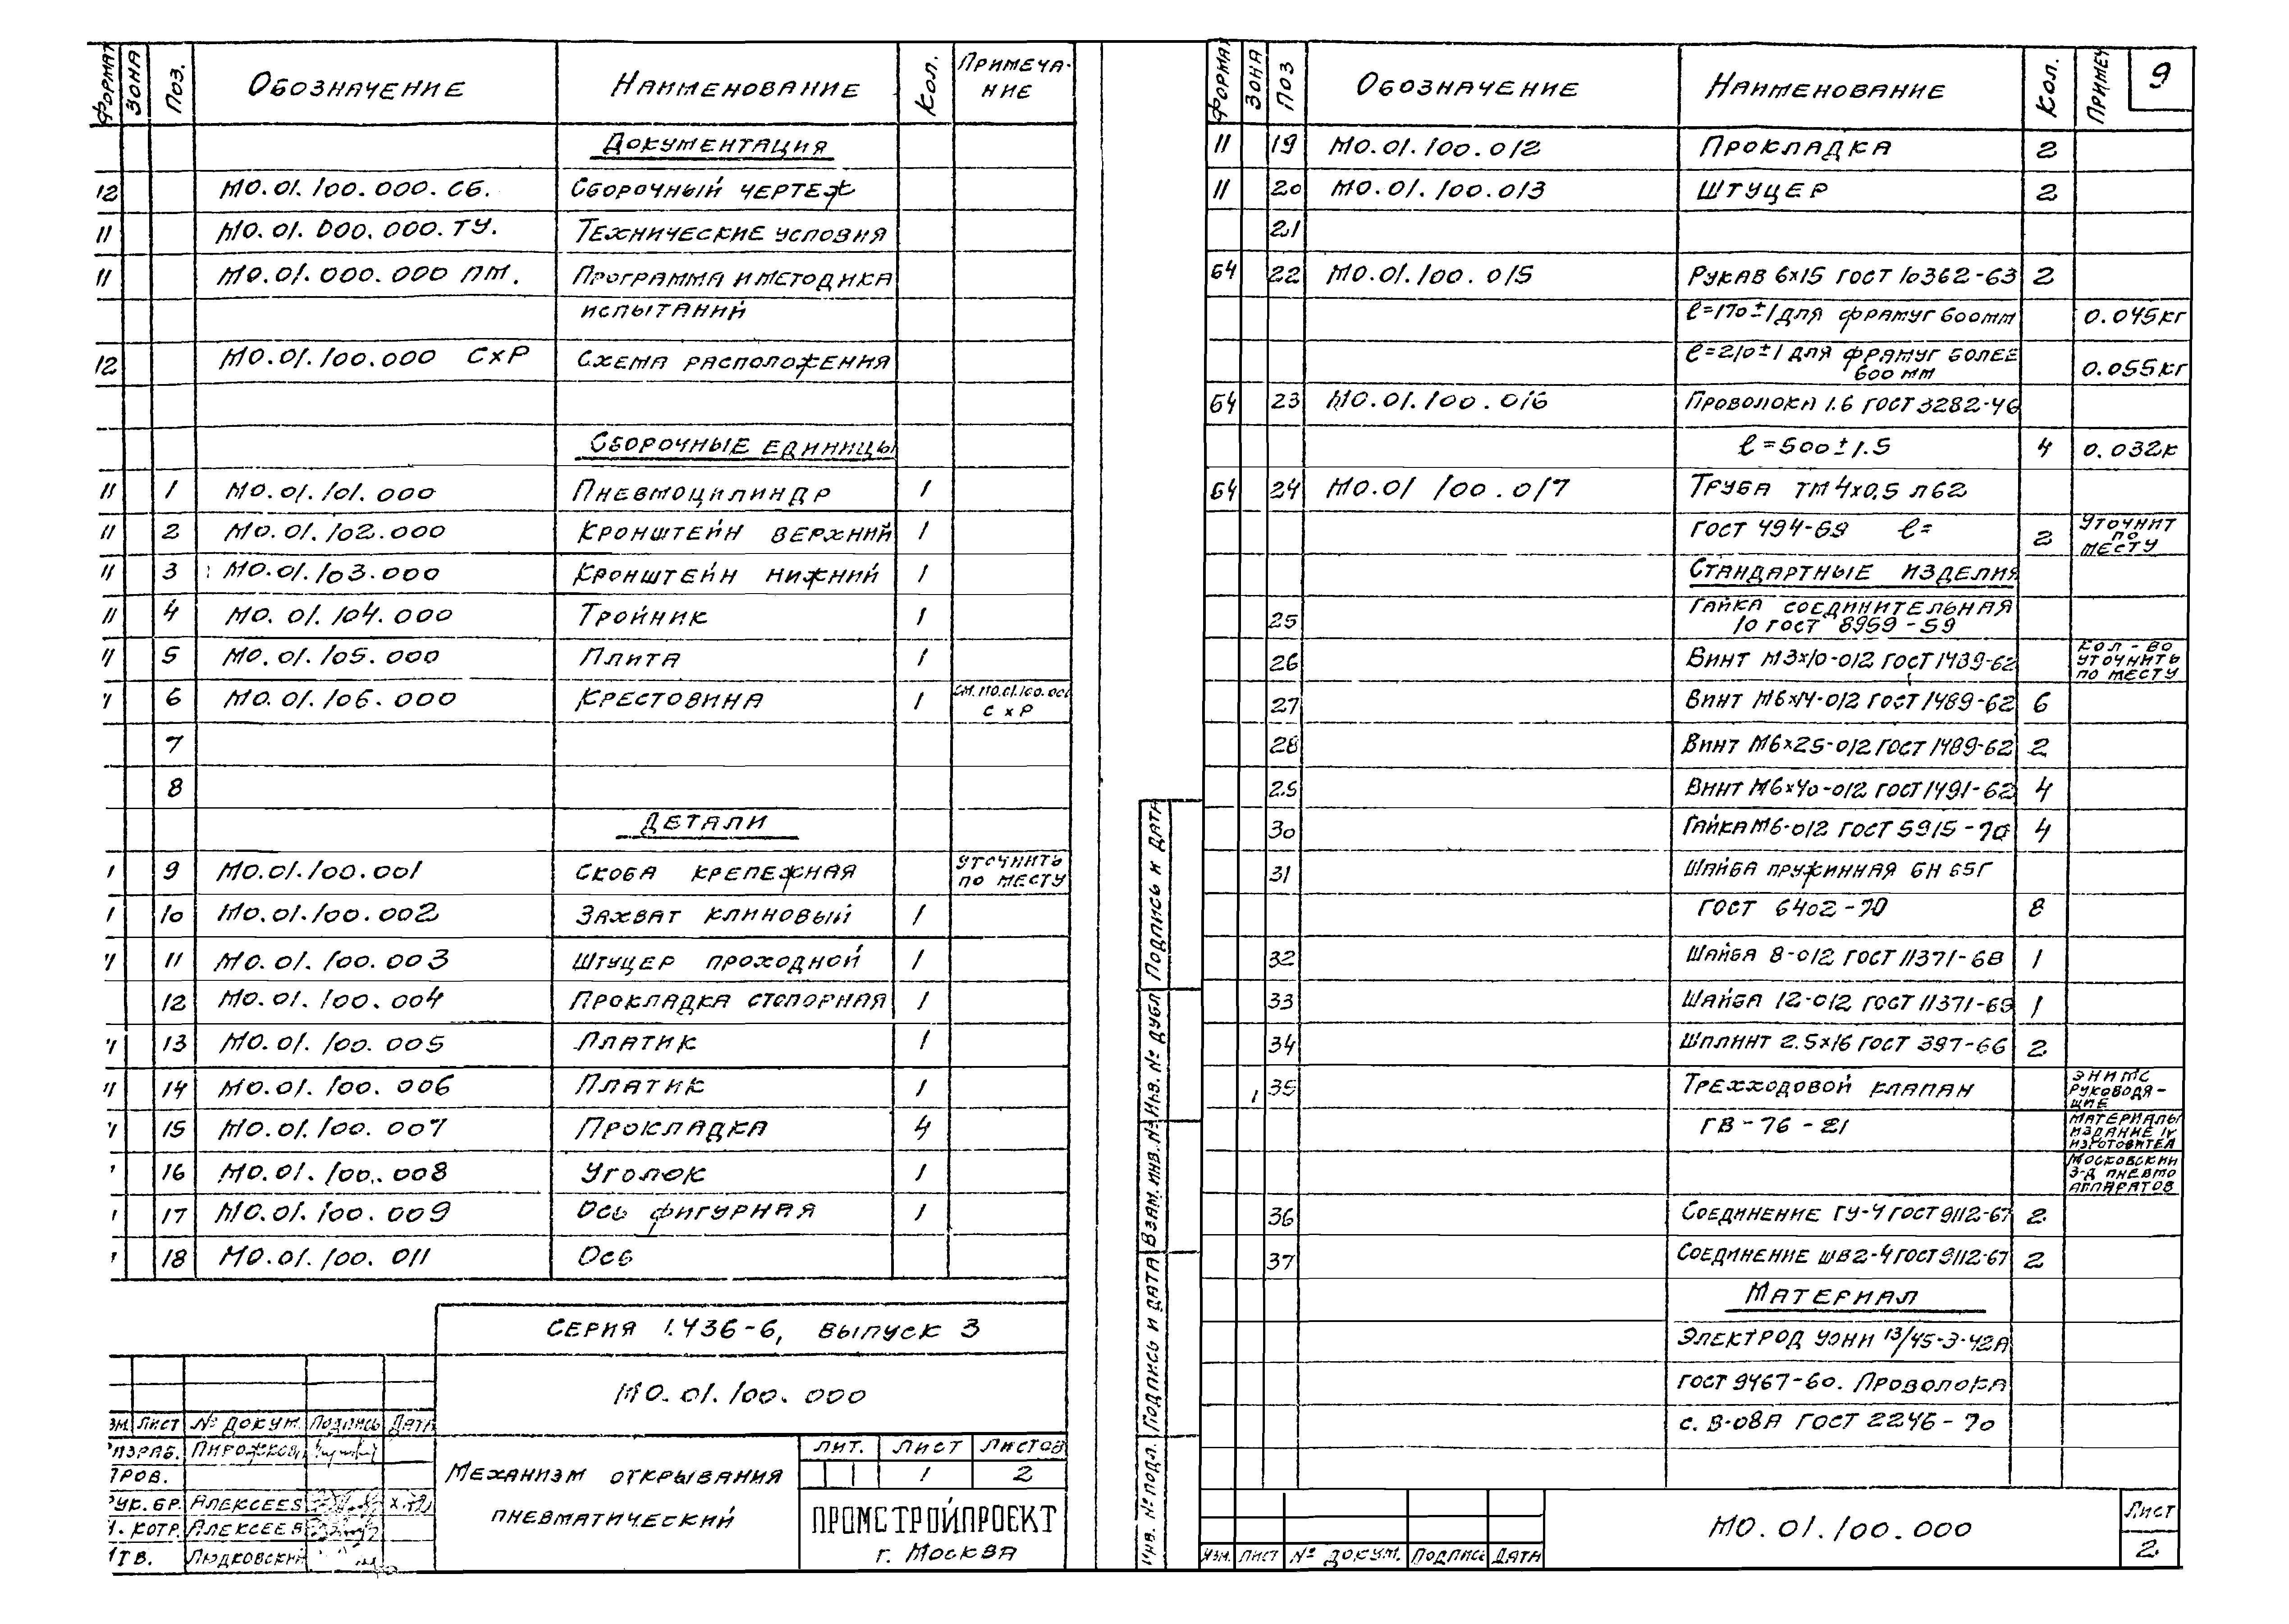 Формат Зона Поз. Обозначение Наименование Кол. Примеча-
ние
Документация
12 МО.01.100.000.СБ. Сборочный чертеж
11 МО.01.000.000.ТУ. Технические условия
11 МО.01.000.000 ПМ. Программа и методика
испытаний
12 МО.01.100.000 СхР Схема расположения
Сборочные единицы
11 1 МО.01.101.000 Пневмоцилиндр 1
11 2 МО.01.102.000 Кронштейн верхний 1
11 3 МО.01.103.000 Кронштейн нижний 1
11 4 МО.01.104.000 Тройник 1
11 5 МО.01.105.000 Плита 1
11 6 МО.01.106.000 Крестовина 1 см. МО.01.100.000
СхР
7
8
Детали
1 9 МО.01.100.001 Скоба крепежная уточнить
по месту
1 10 МО.01.100.002 Захват клиновый 1
11 11 МО.01.100.003 Штуцер проходной 1
12 МО.01.100.004 Прокладка стопорная 1
11 13 МО.01.100.005 Платик 1
11 14 МО.01.100.006 Платик 1
11 15 МО.01.100.007 Прокладка 4
16 МО.01.100.008 Уголок 1
1 17 МО.01.100.009 Ось фигурная 1
18 МО.01.100.011 Ось
Серия 1.436-6, выпуск 3
МО.01.100.000
зм. Лист № докум. Подпись Дата
Разраб. Пирожков
Пров.
Рук. бр. Алексеев
Н. котр. Алексеев
Утв. Людковский
Механизм открывания
пневматический
Лит. Лист Листов
1 2
ПРОМСТРОЙПРОЕКТ
г. Москва
Формат Зона Поз Обозначение Наименование Кол. Примеч 9
11 19 МО.01.100.012 Прокладка 2
11 20 МО.01.100.013 Штуцер 2
21
Б4 22 МО.01.100.015 Рукав 6х15 ГОСТ 10362-63 2
ℓ=170±1 для фрамуг 600мм 0.045кг
ℓ=210±1 для фрамуг более
600 мм 0.055кг
Б4 23 МО.01.100.016 Проволока 1.6 ГОСТ 3282-46
ℓ=500±1.5 4 0.032к
Б4 24 МО.01 100.017 Труба ТМ 4х0,5 Л62
ГОСТ 494-69 ℓ= 2 уточнит
по
месту
Стандартные изделия
25 Гайка соединительная
10 ГОСТ 8959-59
26 Винт М3х10-012 ГОСТ 1489-62 кол-во
уточнить
по месту
27 Винт М6х14-012 ГОСТ 1489-62 6
28 Винт М6х25-012 ГОСТ 1489-62 2
29 Винт М6х40-012 ГОСТ 1491-62 4
30 Гайка М6-012 ГОСТ 5915-70 4
31 Шайба пружинная 6Н 65Г
ГОСТ 6402-70 8
32 Шайба 8-012 ГОСТ 11371-68 1
33 Шайба 12-012 ГОСТ 11371-68 1
34 Шплинт 2.5х16 ГОСТ 397-66 2
1 35 Трехходовой клапан ЭНИМС
руководя-
щие
ГВ-76-21 материалы
издание IV
изготовител
Московский
з-д пневмо
аппаратов
36 Соединение ГУ-4 ГОСТ 9112-67 2
37 Соединение ШВ2-4 ГОСТ 9112-67 2
Материал
Электрод УОНИ 13/45-Э-42А
ГОСТ 9467-60. Проволока
с. В-08А ГОСТ 2246-70
Инв. № подл. Подпись и дата Взам. инв. № Инв. № дубл Подпись и дата
Изм. Лист № докум. Подпись Дата
МО.01.100.000
Лист
2